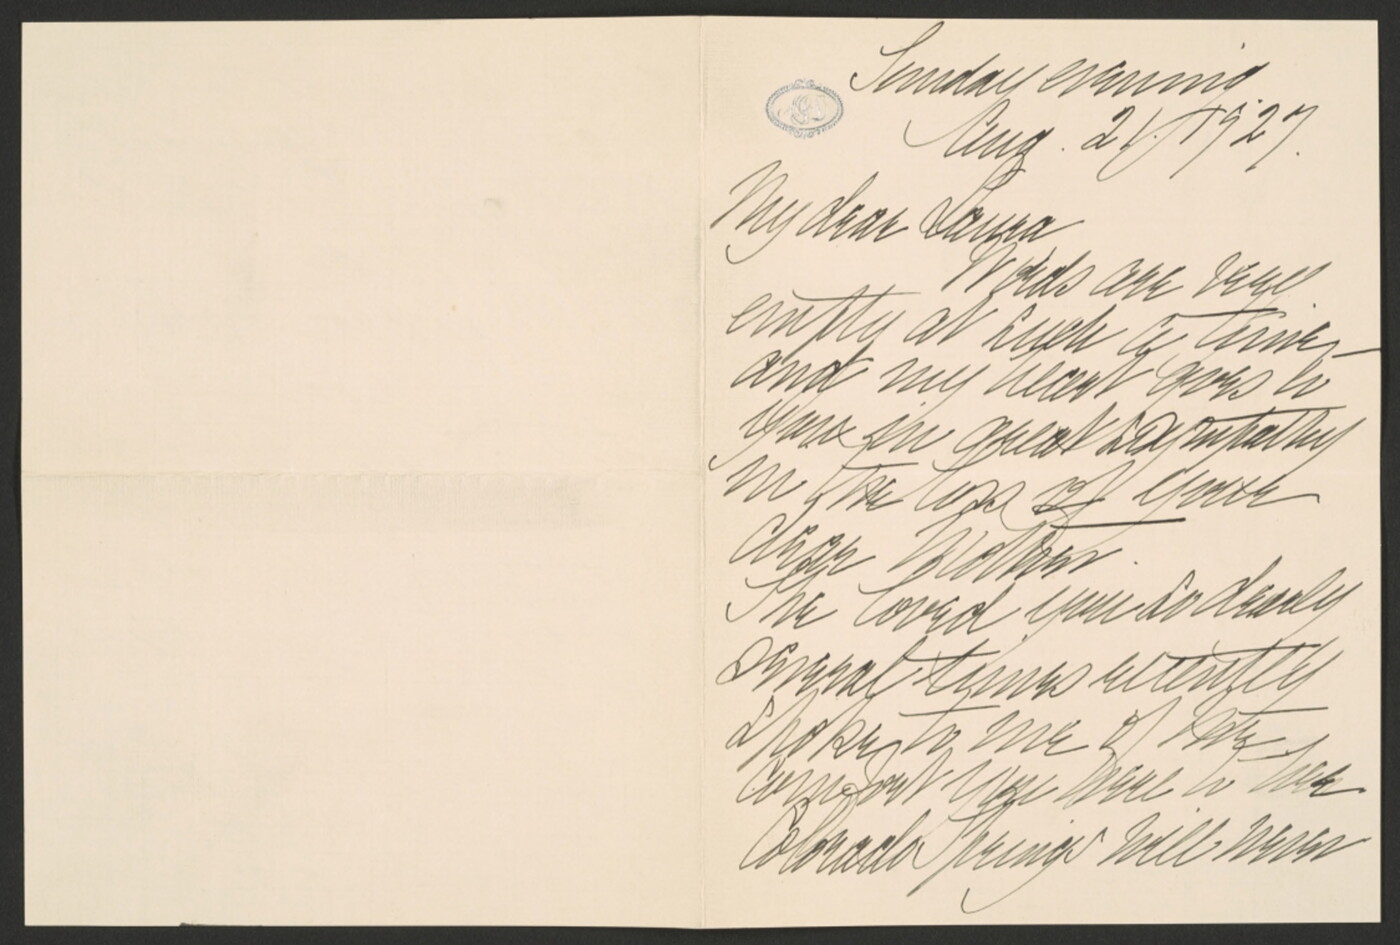 Sunday evening
Aug. 21, 1927.
My dear Laura
Words are very
empty at such a time,
and my heart goes to
you in great sympathy
in the loss of your
dear Mother.
She loved you so dearly
several times recently
spoke to me of the
comfort you were to her
Colorado Springs will never